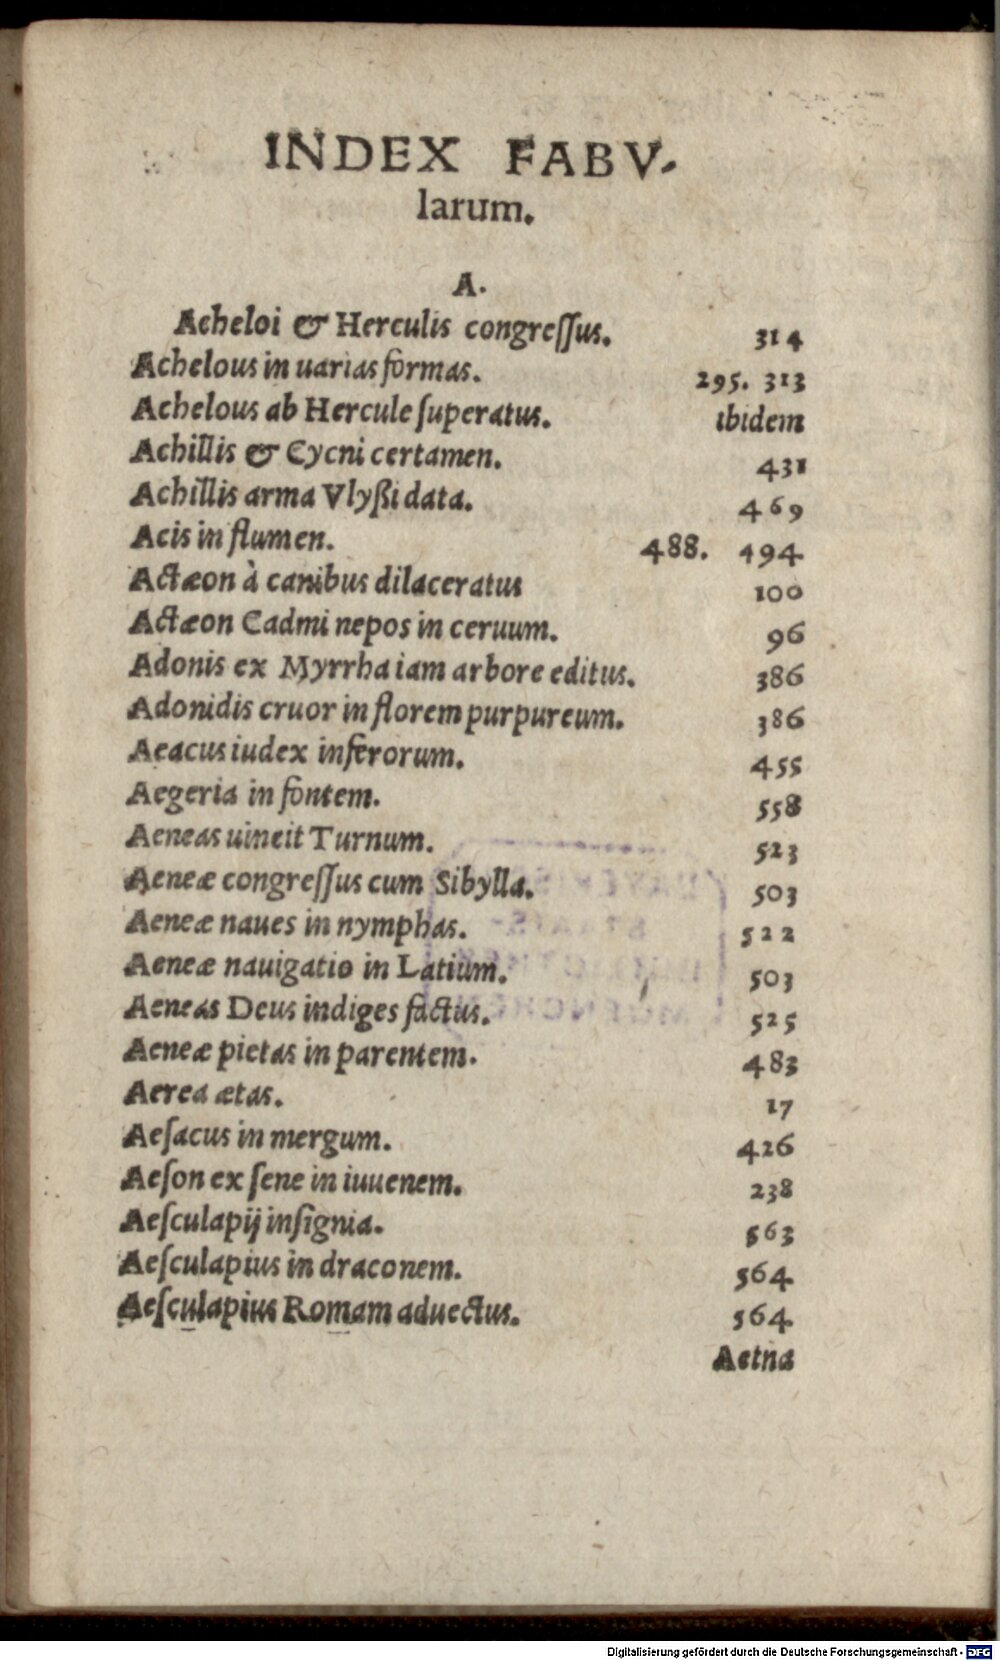 INDEX FABV-
larum.
A.
Acheloi & Herculis congreſſus. 314
Achelous in uarias formas. 295. 313
Achelous ab Hercule ſuperatus. ibidem
Achillis & Cycni certamen. 431
Achillis arma Vlyßi data. 469
Acis in flumen. 488. 494
Actæon à canibus dilaceratus 100
Actæon Cadmi nepos in ceruum. 96
Adonis ex Myrrha iam arbore editus. 386
Adonidis cruor in florem purpureum. 386
Aeacus iudex inferorum. 455
Aegeria in fontem. 558
Aeneas uincit Turnum. 523
Aeneæ congreſſus cum Sibylla. 503
Aeneæ naues in nymphas. 522
Aeneæ nauigatio in Latium. 503
Aeneas Deus indiges factus. 525
Aeneæ pietas in parentem. 483
Aerea ætas. 17
Aeſacus in mergum. 426
Aeſon ex ſene in iuuenem. 238
Aeſculapij inſignia. 563
Aeſculapius in draconem. 564
Aeſculapius Romam aduectus. 564
Aetna
Digitalisierung gefördert durch die Deutsche Forschungsgemeinschaft - DFG